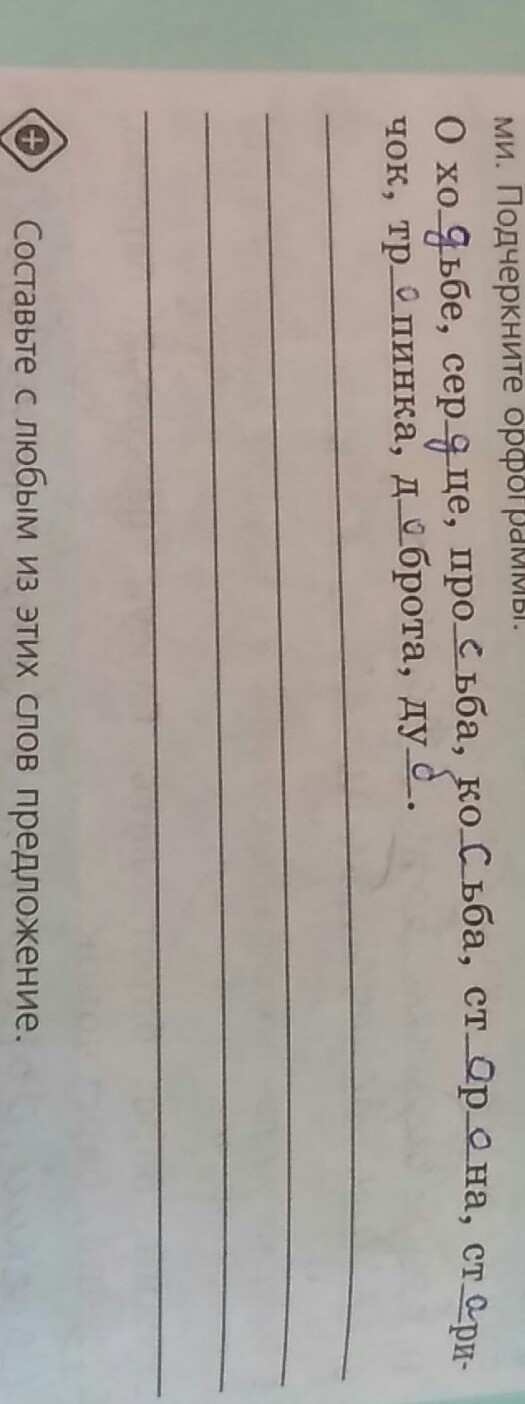 ми. Подчеркните орфограммы.
О ходьбе, сердце, просьба, косьба, сторона, стари-
чок, тропинка, доброта, дуб.
Составьте с любым из этих слов предложение.